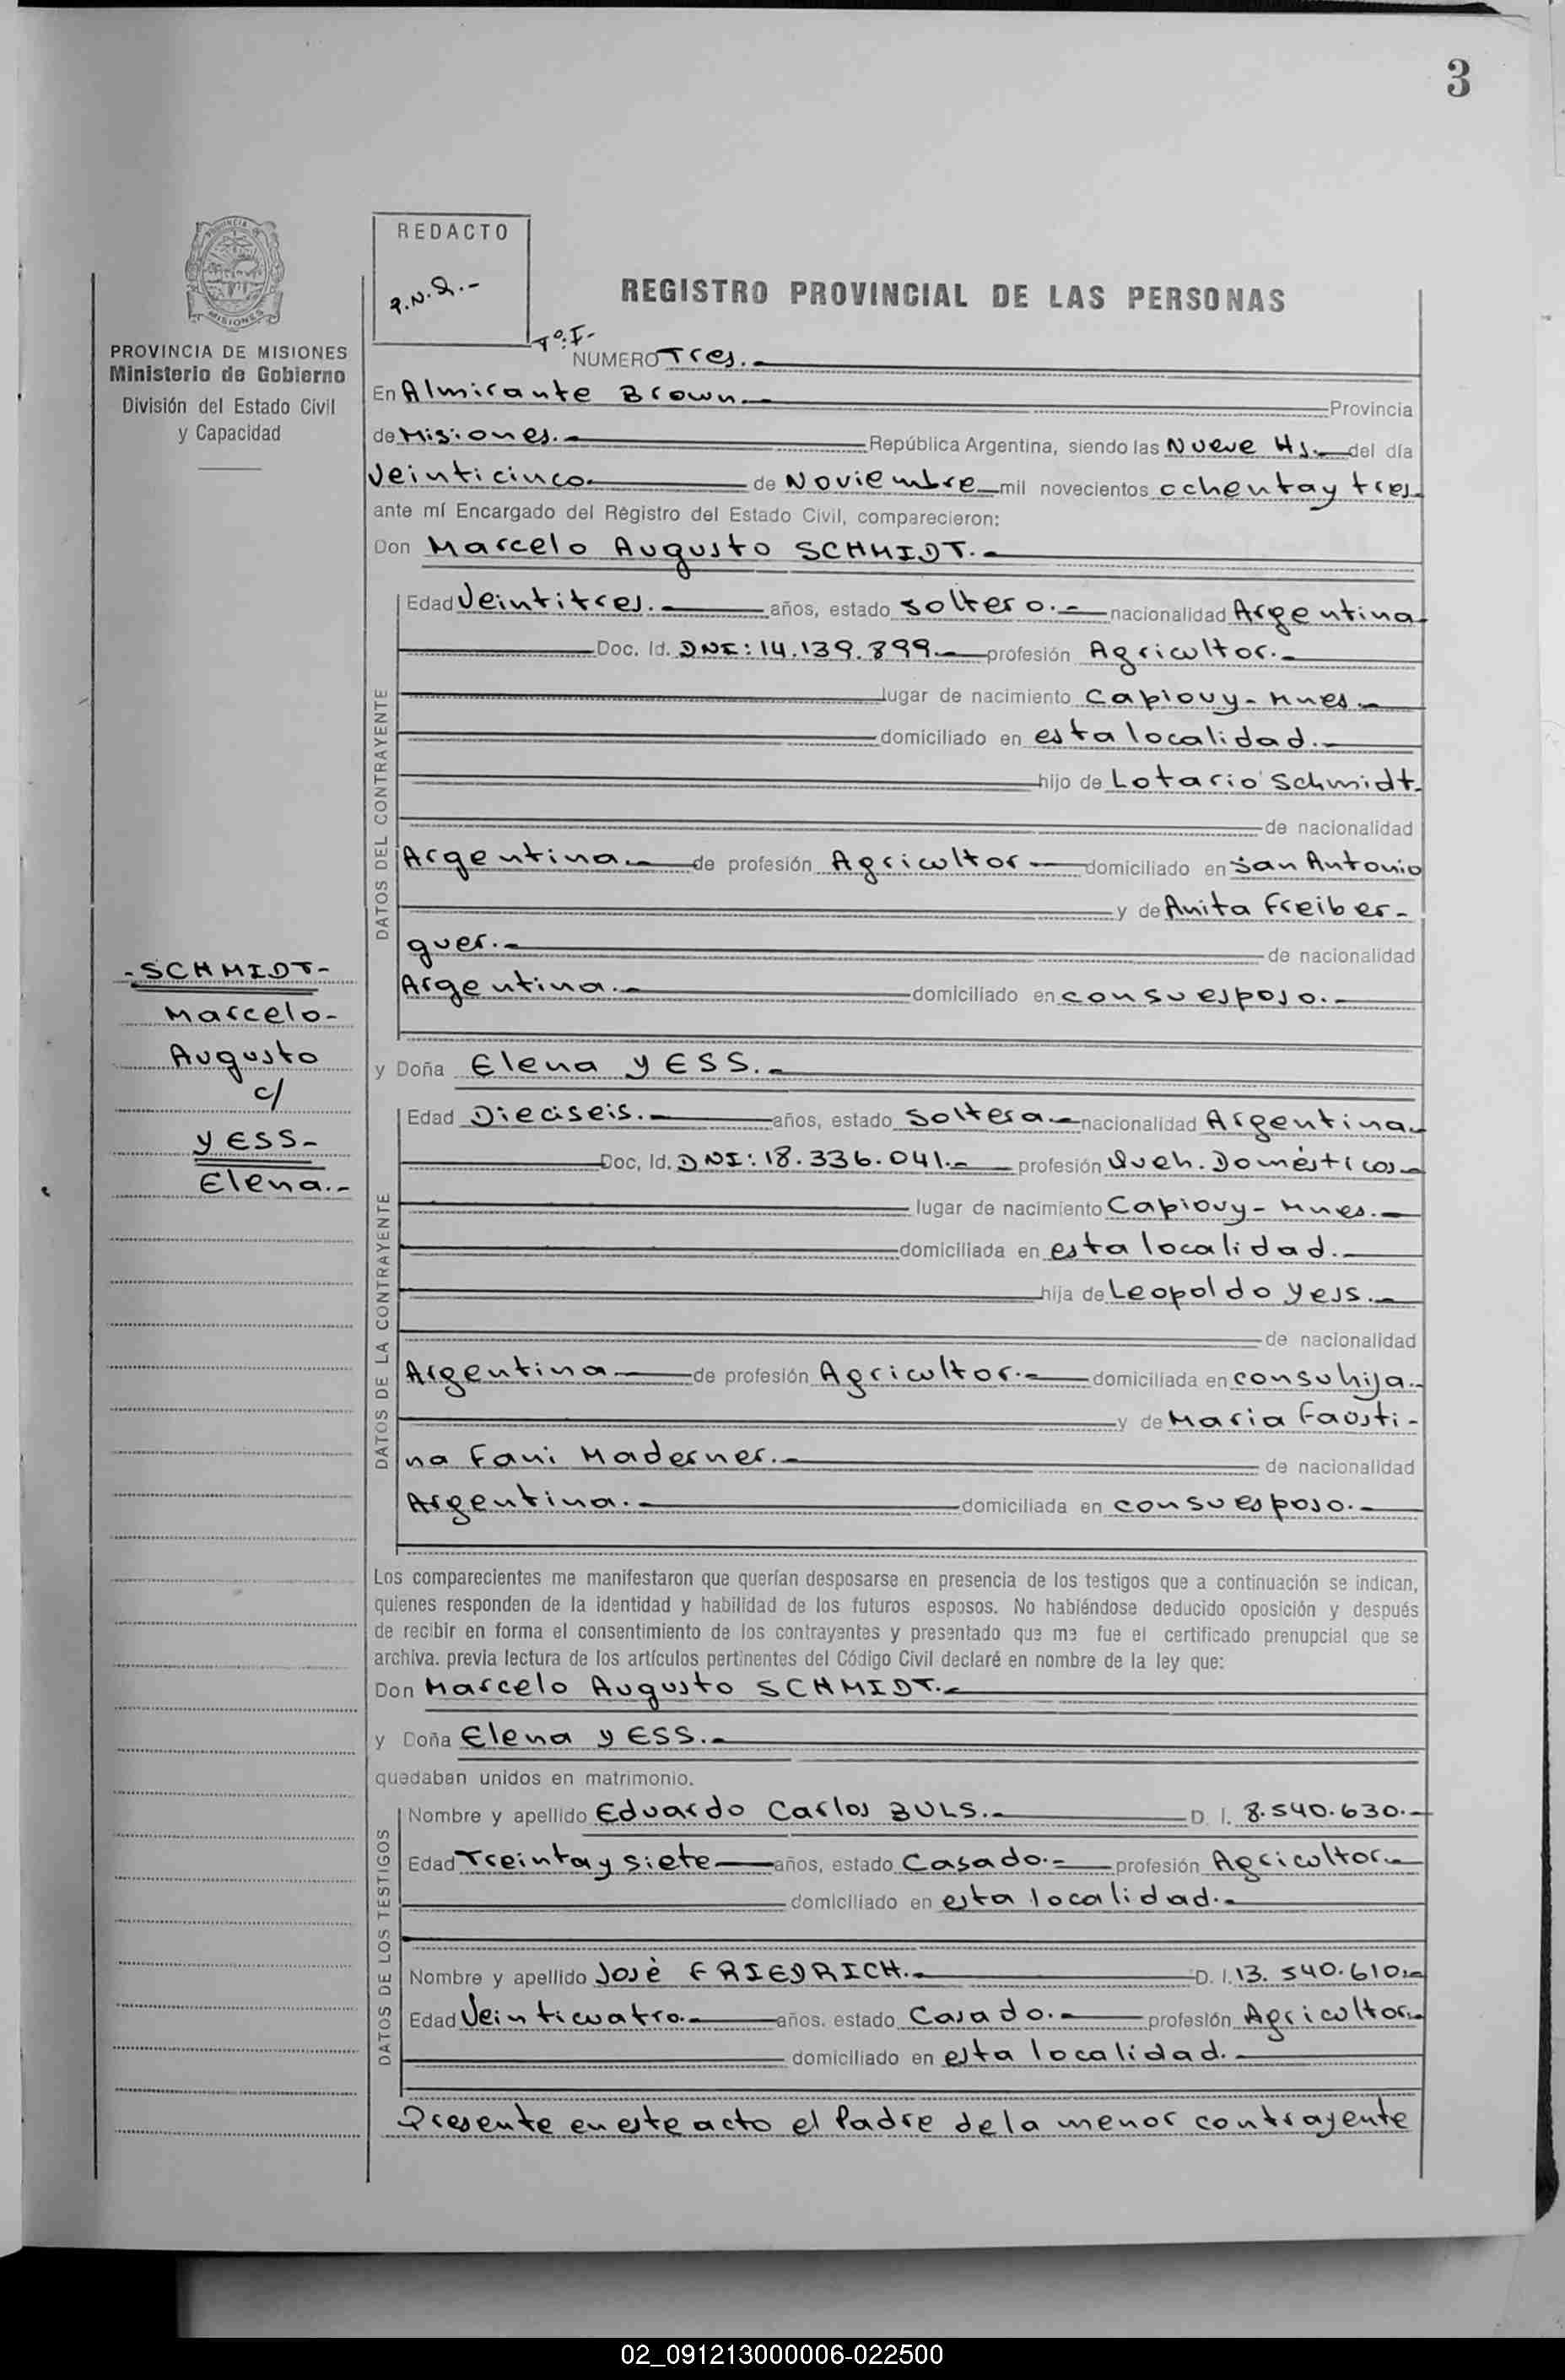 3
REDACTO
PROVINCIA DE MISIONES
Ministerio de Gobierno
División del Estado Civil
y Capacidad
REGISTRO PROVINCIAL DE LAS PERSONAS
Tº: I-
NUMERO Tres.-
En Almirante Brown.- Provincia
de Misiones.- República Argentina, siendo las Nueve Hs.- del día
Veinticinco.- de Noviembre mil novecientos ochenta y tres
ante mí Encargado del Registro del Estado Civil, comparecieron:
Don Marcelo Augusto SCHMIDT.-
DATOS DEL CONTRAYENTE
Edad Veintitres.- años, estado soltero.- nacionalidad Argentina
Doc. Id. DNI: 14.139.899.- profesión Agricultor.-
lugar de nacimiento Capiovy- Mnes.-
domiciliado en esta localidad.-
hijo de Lotario Schmidt.
de nacionalidad
Argentina.- de profesión Agricultor- domiciliado en San Antonio
y de Anita Freiber-
guer.- de nacionalidad
Argentina.- domiciliado en con su esposo.-
-SCHMIDT-
Marcelo-
Augusto
c/
YESS-
Elena.-
y Doña Elena YESS.-
DATOS DE LA CONTRAYENTE
Edad Dieciseis.- años, estado Soltera.- nacionalidad Argentina.-
Doc, Id. DNI: 18.336.041.- profesión Queh. Domésticos-
lugar de nacimiento Capiovy- Mnes.-
domiciliada en esta localidad.-
hija de Leopoldo Yess.-
de nacionalidad
Argentina.- de profesión Agricultor.- domiciliada en con su hija.-
y de Maria Fausti-
na Fani Maderner.- de nacionalidad
Argentina.- domiciliada en con su esposo.-
Los comparecientes me manifestaron que querían desposarse en presencia de los testigos que a continuación se indican,
quienes responden de la identidad y habilidad de los futuros esposos. No habiéndose deducido oposición y después
de recibir en forma el consentimiento de los contrayentes y presentado que me fue el certificado prenupcial que se
archiva. previa lectura de los artículos pertinentes del Código Civil declaré en nombre de la ley que:
Don Marcelo Augusto SCHMIDT.-
y Doña Elena YESS.-
quedaban unidos en matrimonio.
DATOS DE LOS TESTIGOS
Nombre y apellido Eduardo Carlos BULS.- D. I. 8.540.630.-
Edad Treinta y siete- años, estado Casado.- profesión Agricultor.-
domiciliado en esta localidad.-
Nombre y apellido José FRIEDRICH.- D. I. 13.540.610.-
Edad Veinticuatro.- años. estado Casado.- profesión Agricultor.-
domiciliado en esta localidad.-
Presente en este acto el Padre de la menor contrayente
02_091213000006-022500